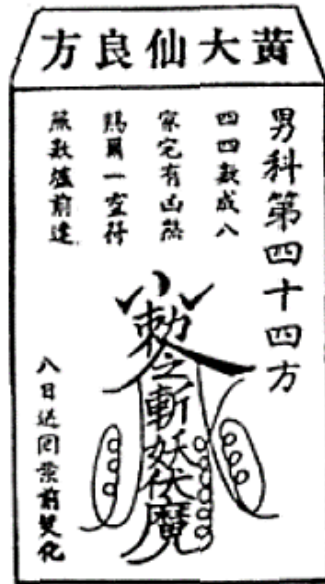 黃大仙良方
男科第四十四方
四四數成八
家宅有凶煞
賜爾一空符
無數爐前達
敕令
之斬妖伏魔
八日送回案前焚化